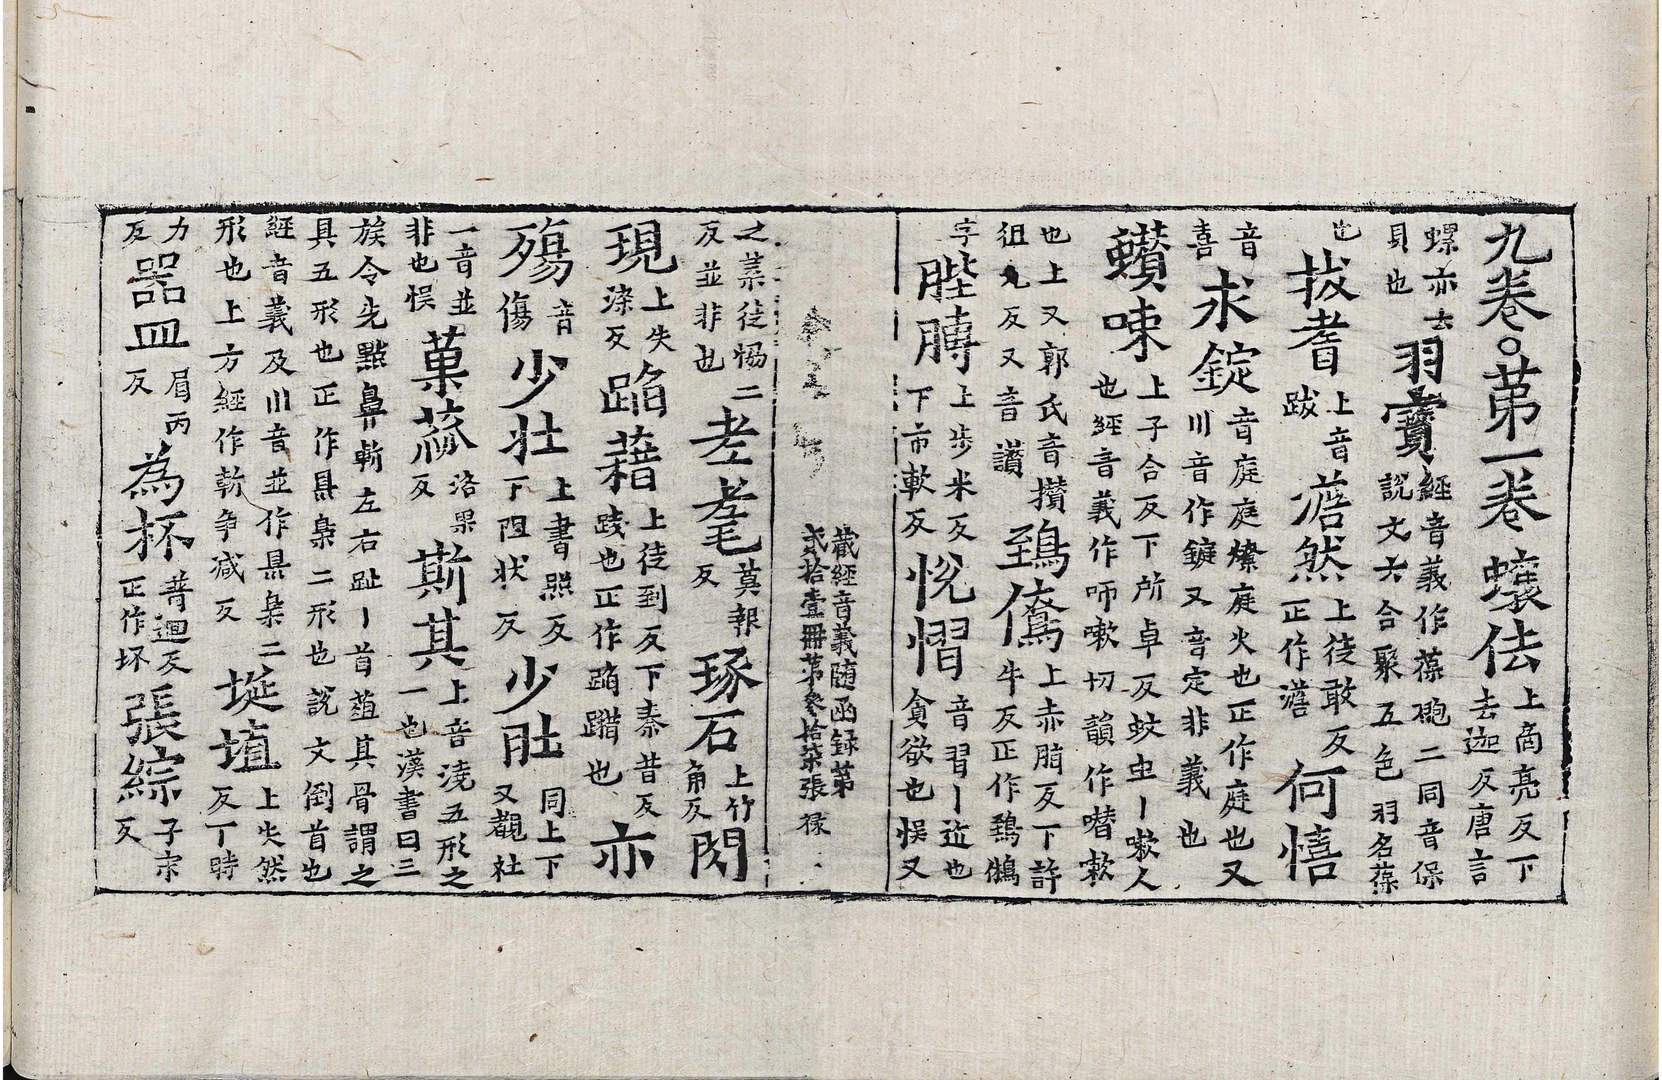 九卷。第一卷 蠰佉 上商亮反下去迦反唐言
螺亦云貝也 羽寶 經音義作葆䃣二同音保說文云合聚五色羽名葆
也 拔耆 上音跋 澹然 上徒敢反正作澹 何憘
音喜 求錠 音庭庭庭燎庭火也正作庭也又川音作鏇又音定非義也
唻 上子合反下所卓反蚊虫丨嗽人也經音義作咂嗽切韻作噆欶
也上又郭氏音攢徂丸反又音讃 鵄 上赤脂反下許牛反正作鵄鵂
字 䏶膞 上步米反下市軟反 悅慴 音習丨近也貪欲也悞又
藏經音義随函録第
貳拾壹冊第叅拾柒張 禄
之葉徒協二反並非也 耄 莫報反 琢石 上竹角反 閃
現 上失染反 蹈藉 上徒到反下秦昔反踐也正作蹈躤也 亦
殤 音傷 少壯 上書照反下阻状反 少肚 同上下又覩社
一音並非也悞 菓蓏 洛果反 斯其 上音澆五形之一也漢書曰三
族令先黥鼻斬左右趾丨首葅其骨謂之具五形也正作県梟二形也說文倒首也
經音義及川音並作県梟二形也上方經作斬争減反 埏埴 上失然反丁時
力反 器皿 眉丙反 為杯 普迴反正作坏 張綜 子宋反